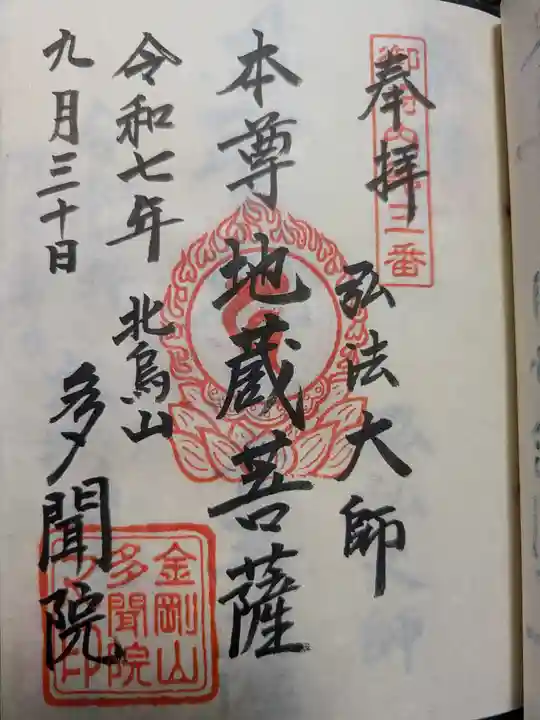 奉拝
弘法大師
本尊 地蔵菩薩
令和七年
九月三十日
北烏山
多聞院
金剛山
多聞院
印
番